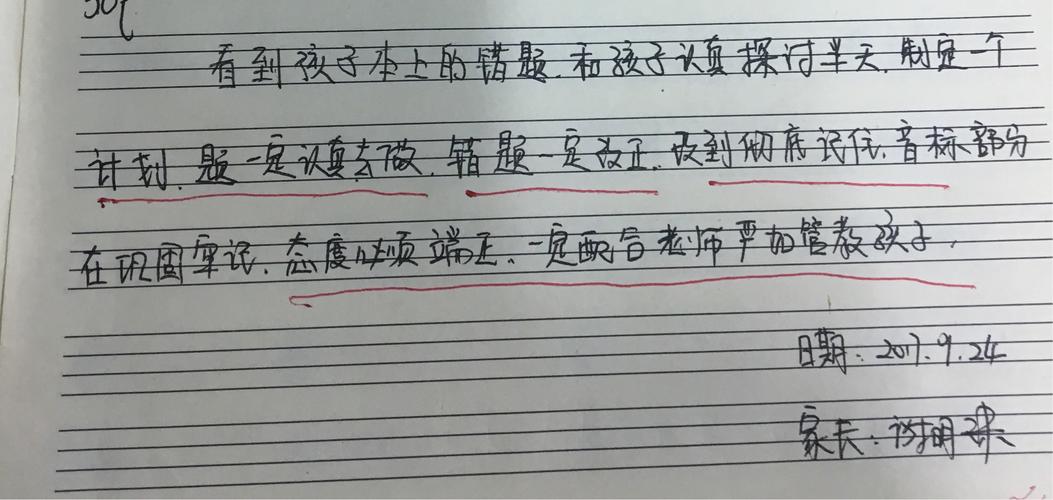 看到孩子本上的错题.和孩子认真探讨半天.制定一个
计划.题一定认真去做.错题一定改正.及到彻底记住.音标部分
在巩固牢记.态度必须端正.一定配合老师严加管教孩子.
日期:2017.9.24
家长:谢明